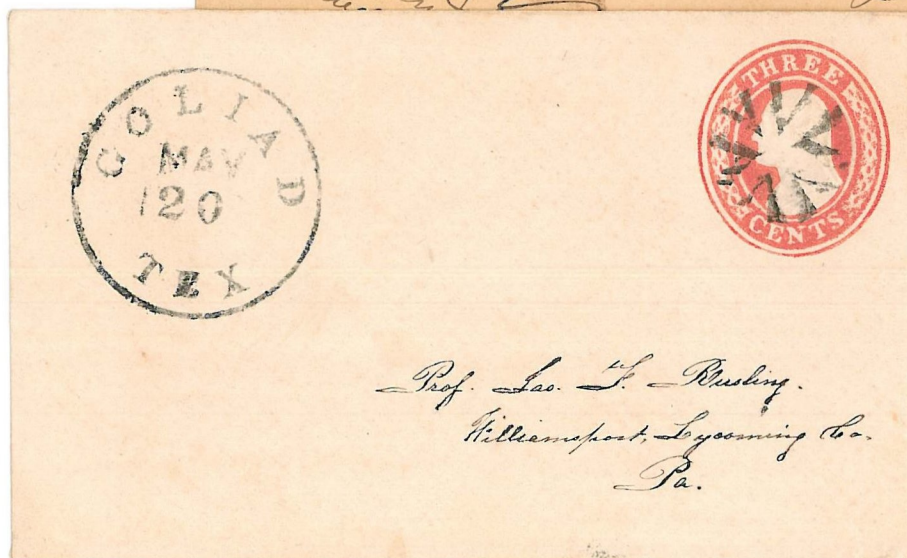 GOLIAD
MAY
20
TEX
THREE
CENTS
Prof. Jas. F. Rusling.
Williamsport, Lycoming Co.
Pa.